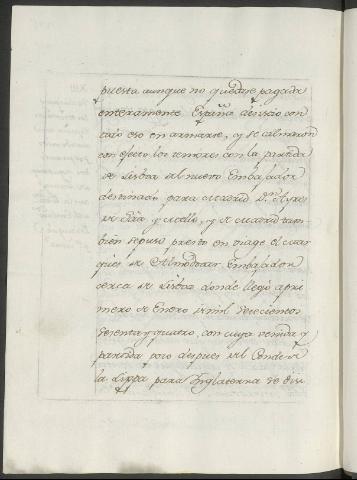 puesta aunque no quedase pagada
enteramente. España desistió con
todo eso en armarse, y se calmaron
con efecto los temores con la partida
de Lisboa del nuevo Embajador
destinado para Madrid Dn. Ayres
de Saa, y Mello, y de Madrid tam-
bien se puso presto en viage el Mar
qués de Almodovar Embajador
cerca de Lisboa donde llegó a pri
mero de Enero de mil setecientos
sesenta y quatro, con cuya venida y
partida poco despues del Conde de
la Lippa para Inglaterra se disi